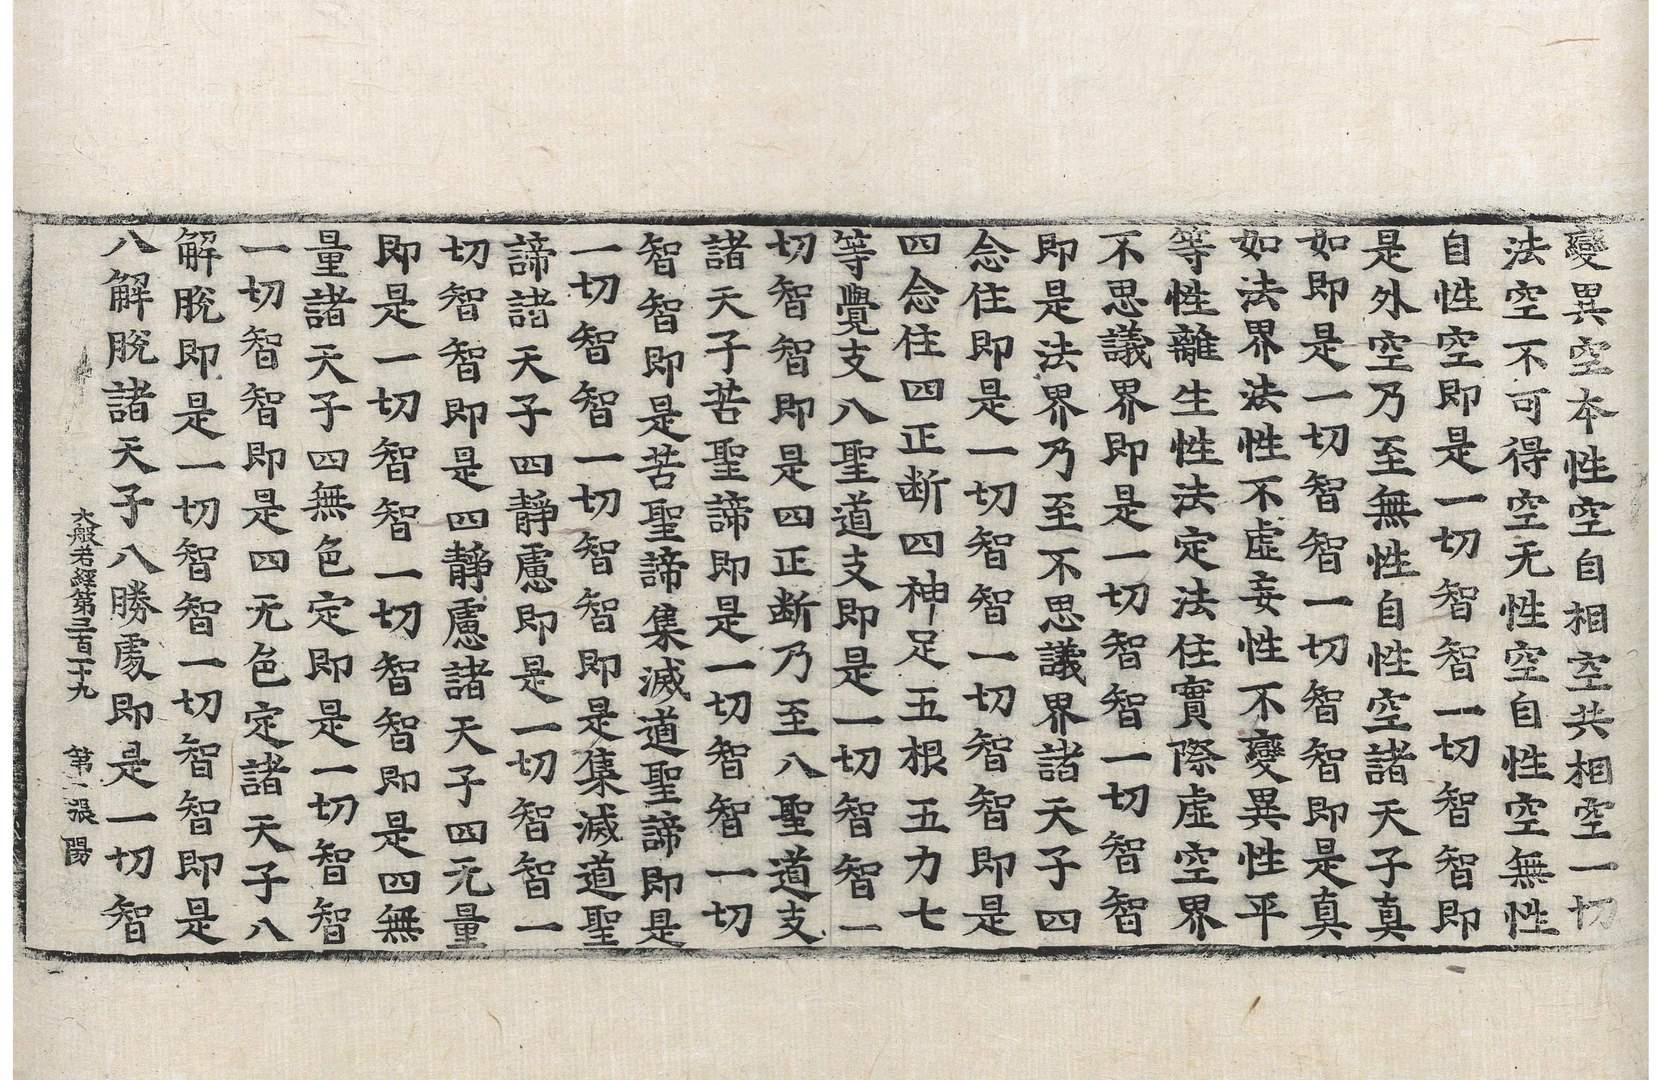 變異空本性空自相空共相空一切
法空不可得空无性空自性空無性
自性空即是一切智智一切智智即
是外空乃至無性自性空諸天子真
如即是一切智智一切智智即是真
如法界法性不虛妄性不變異性平
等性離生性法定法住實際虛空界
不思議界即是一切智智一切智智
即是法界乃至不思議界諸天子四
念住即是一切智智一切智智即是
四念住四正断四神足五根五力七
等覺支八聖道支即是一切智智一
切智智即是四正断乃至八聖道支
諸天子苦聖諦即是一切智智一切
智智即是苦聖諦集滅道聖諦即是
一切智智一切智智即是集滅道聖
諦諸天子四靜慮即是一切智智一
切智智即是四靜慮諸天子四无量
即是一切智智一切智智即是四無
量諸天子四無色定即是一切智智
一切智智即是四无色定諸天子八
解脫即是一切智智一切智智即是
八解脫諸天子八勝處即是一切智
大般若經第三百一十九 第張 陽